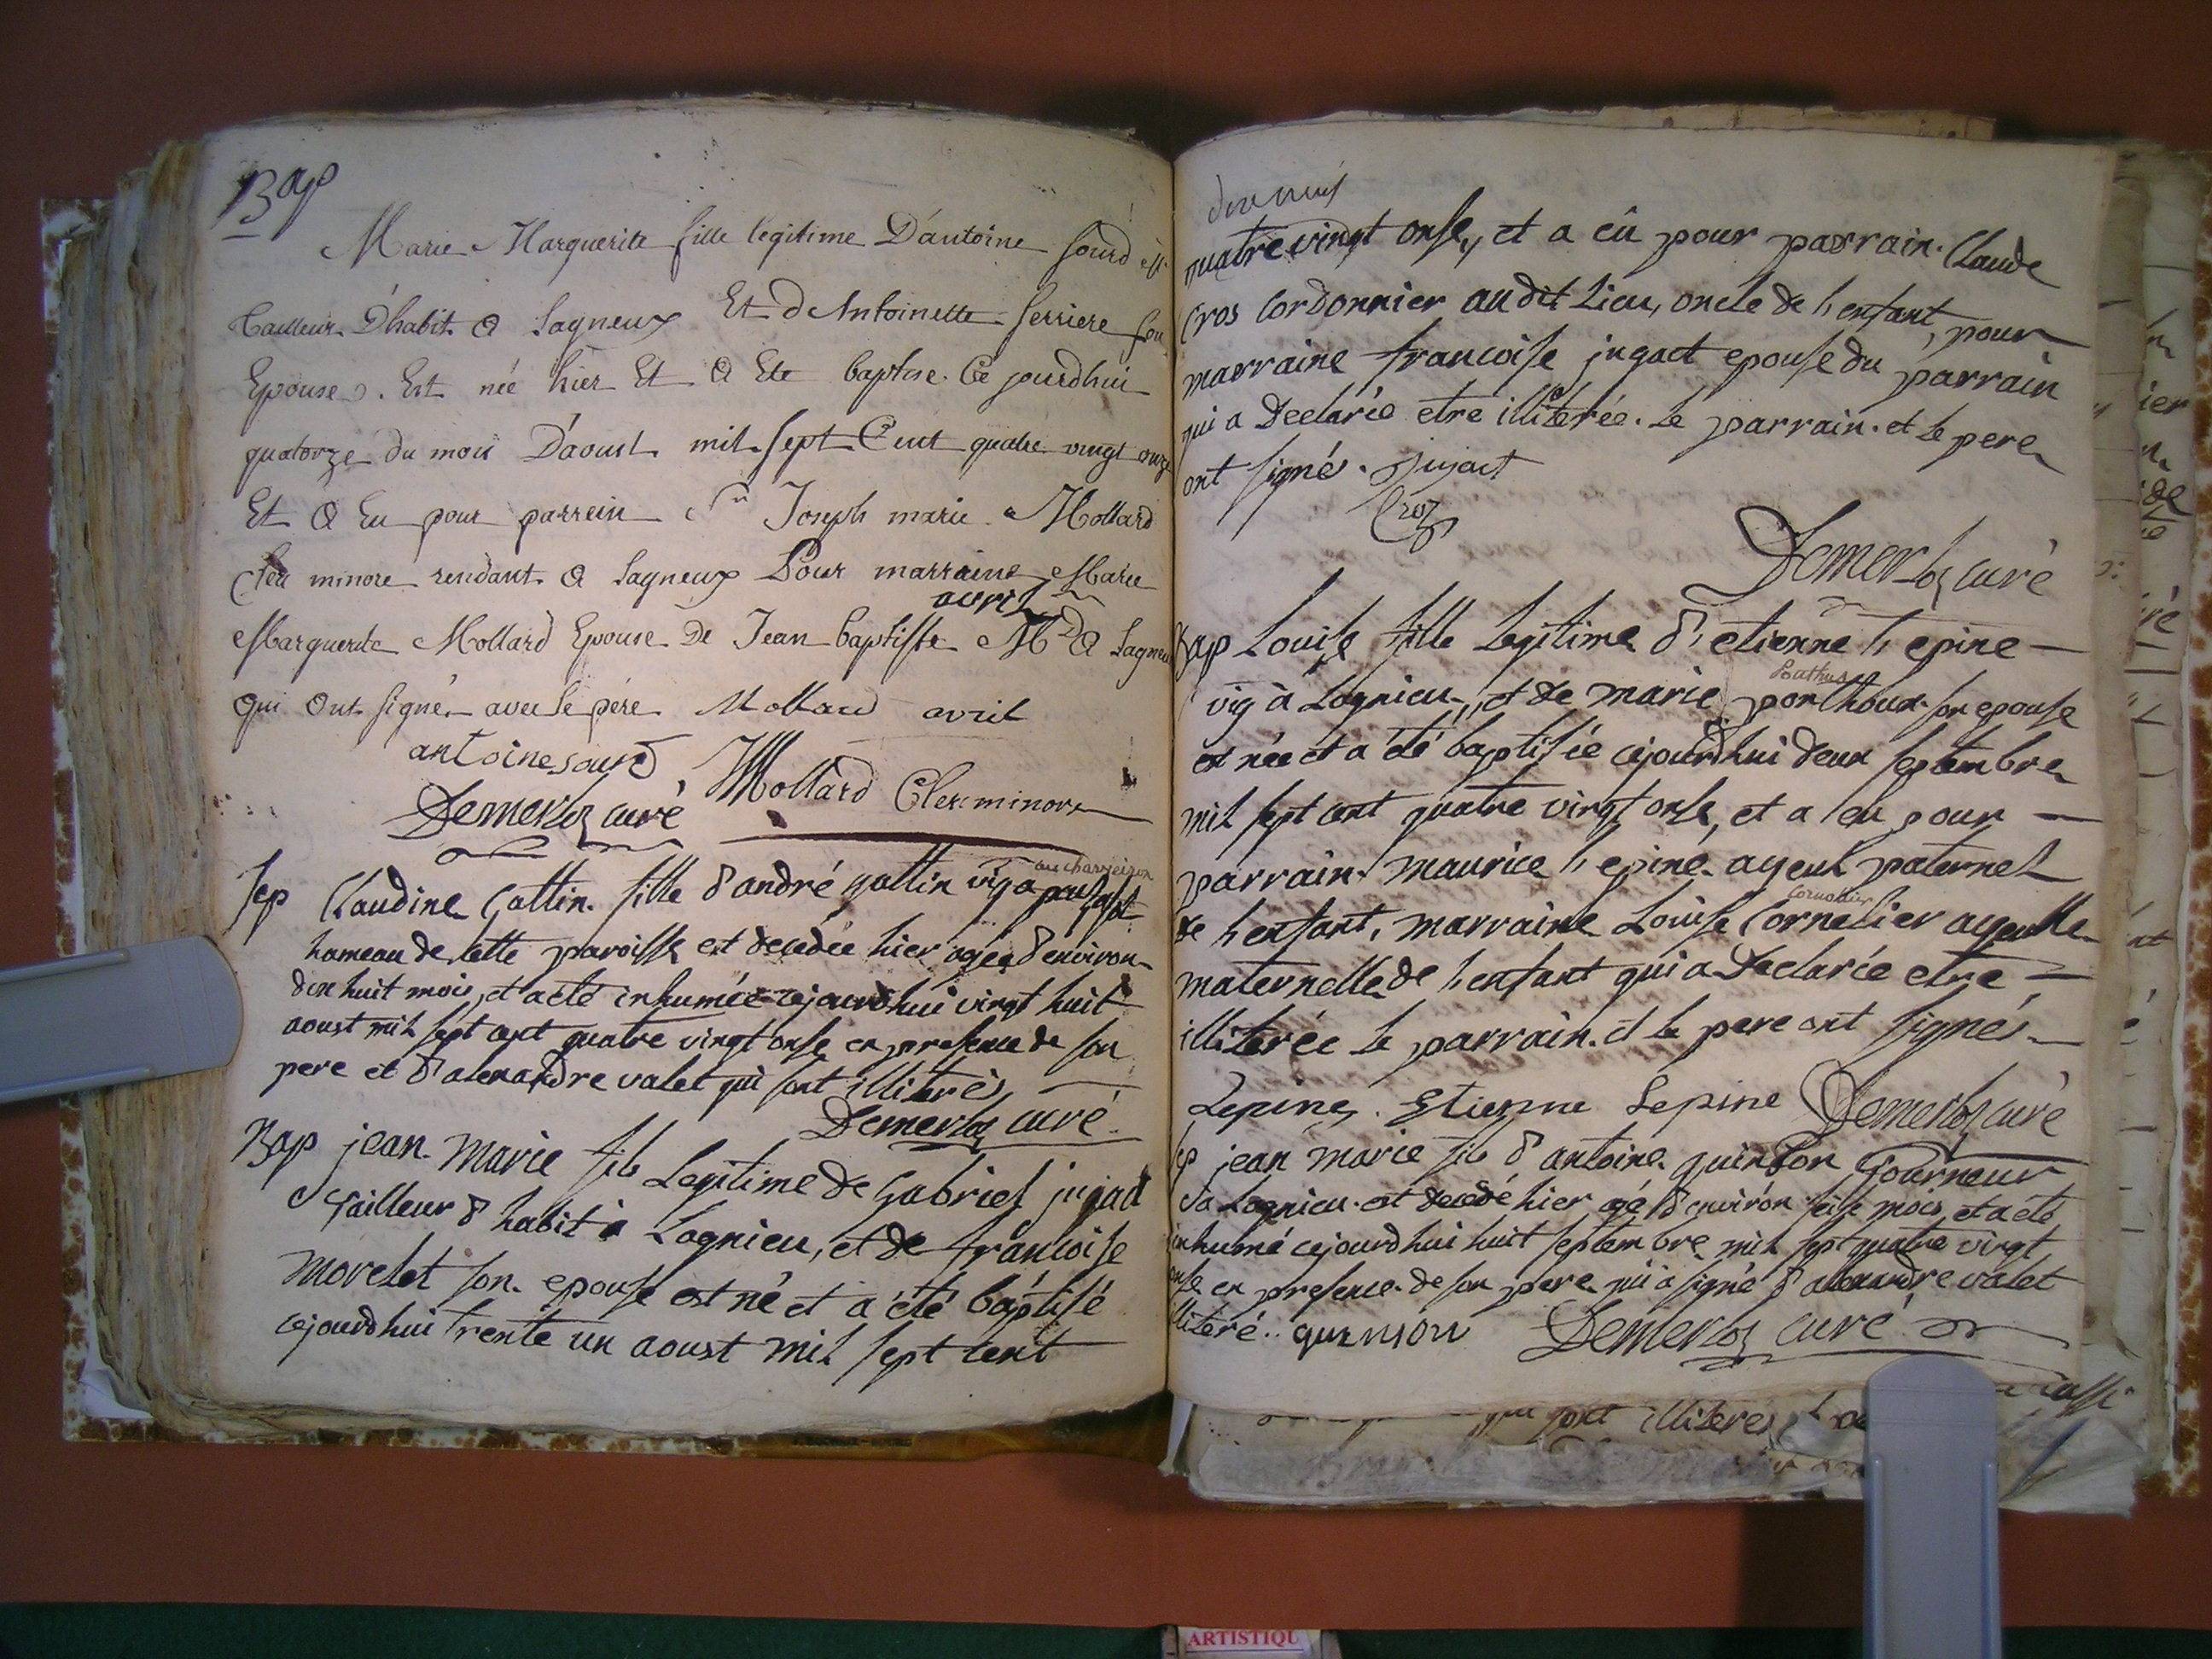 Bap
Marie Marguerite fille legitime D'antoine Sourd
tailleur D'habit a Lagneux Et d'Antoinette ferriere son
Epouse. Est née hier Et a Ete baptise Ce jourdhui
quatorze du mois D'aoust mil sept Cent quatre vingt onze
Et a Eu pour parrein Sr Joseph marie Mollard
minoré rendant a Lagneux Pour marraine Marie
avril
Marguerite Mollard Epouse De Jean baptiste Md a Lagneu
qui ont signé avec le pére Mollard avril
antoine sourd Mollard Clerc minoré
Demerloz curé
au charveizon
Sep Claudine Gattin fille d'andré gattin vig a
hameau de cette paroisse est decedée hier agée d'environ
dix huit mois, et a été inhumée cejourdhui vingt huit
aoust mil sept cent quatre vingt onse en presence de son
pere et d'alexandre valet qui sont illiterés
Demerloz curé
Bap jean marie fils Legitime de Gabriel jujact
tailleur d'habit à Lagnieu, et de francoise
morelet son epouse est né et a été baptisé
cejourdhui trente un aoust mil sept cent
quatre vingt onse, et a eû pour parrain Claude
Cros Cordonnier audit Lieu, oncle de l'enfant, pour
marraine francoise jugact epouse du parrain
qui a Declarée etre illiterée. Le parrain et le pere
ont signés. Jujact
Croz
Demerloz curé
Bap Louise fille Legitime d'etienne l'epine
Pouthus
vig à Lagnieu, et de marie porthoux son epouse
est née et a été baptisée cejourdhui deux septembre
mil sept cent quatre vingt onse, et a eu pour
parrain maurice l'epine ayeul paternel
Cornollier
de l'enfant, marraine Louise Cornelier ayeulle
maternelle de l'enfant qui a Declarée etre
illiterée le parrain et le pere ont signés
Lepine. Etienne Lepine Demerloz curé
Sep jean marie fils d'antoine quinson Tourneur
a Lagnieu est decedé hier agé d'environ seise mois et a été
inhumé cejourdhui huit septembre mil sept quatre vingt
onse en presence de son pere qui a signé d'alexandre valet
illiteré. quinson Demerloz curé
qui sont illiteres
ARTISTIQU